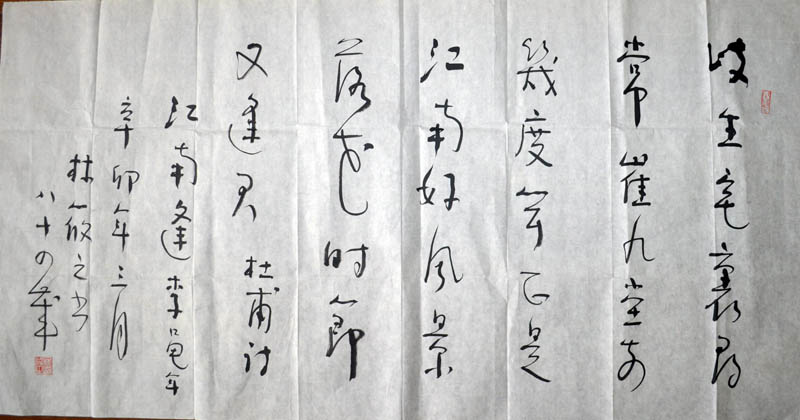 岐王宅裏尋
常崔九堂前
幾度聞正是
江南好风景
落花时節
又逢君 杜甫诗
江南逢李龟年
辛卯年三月
林筱之书
八十四歲